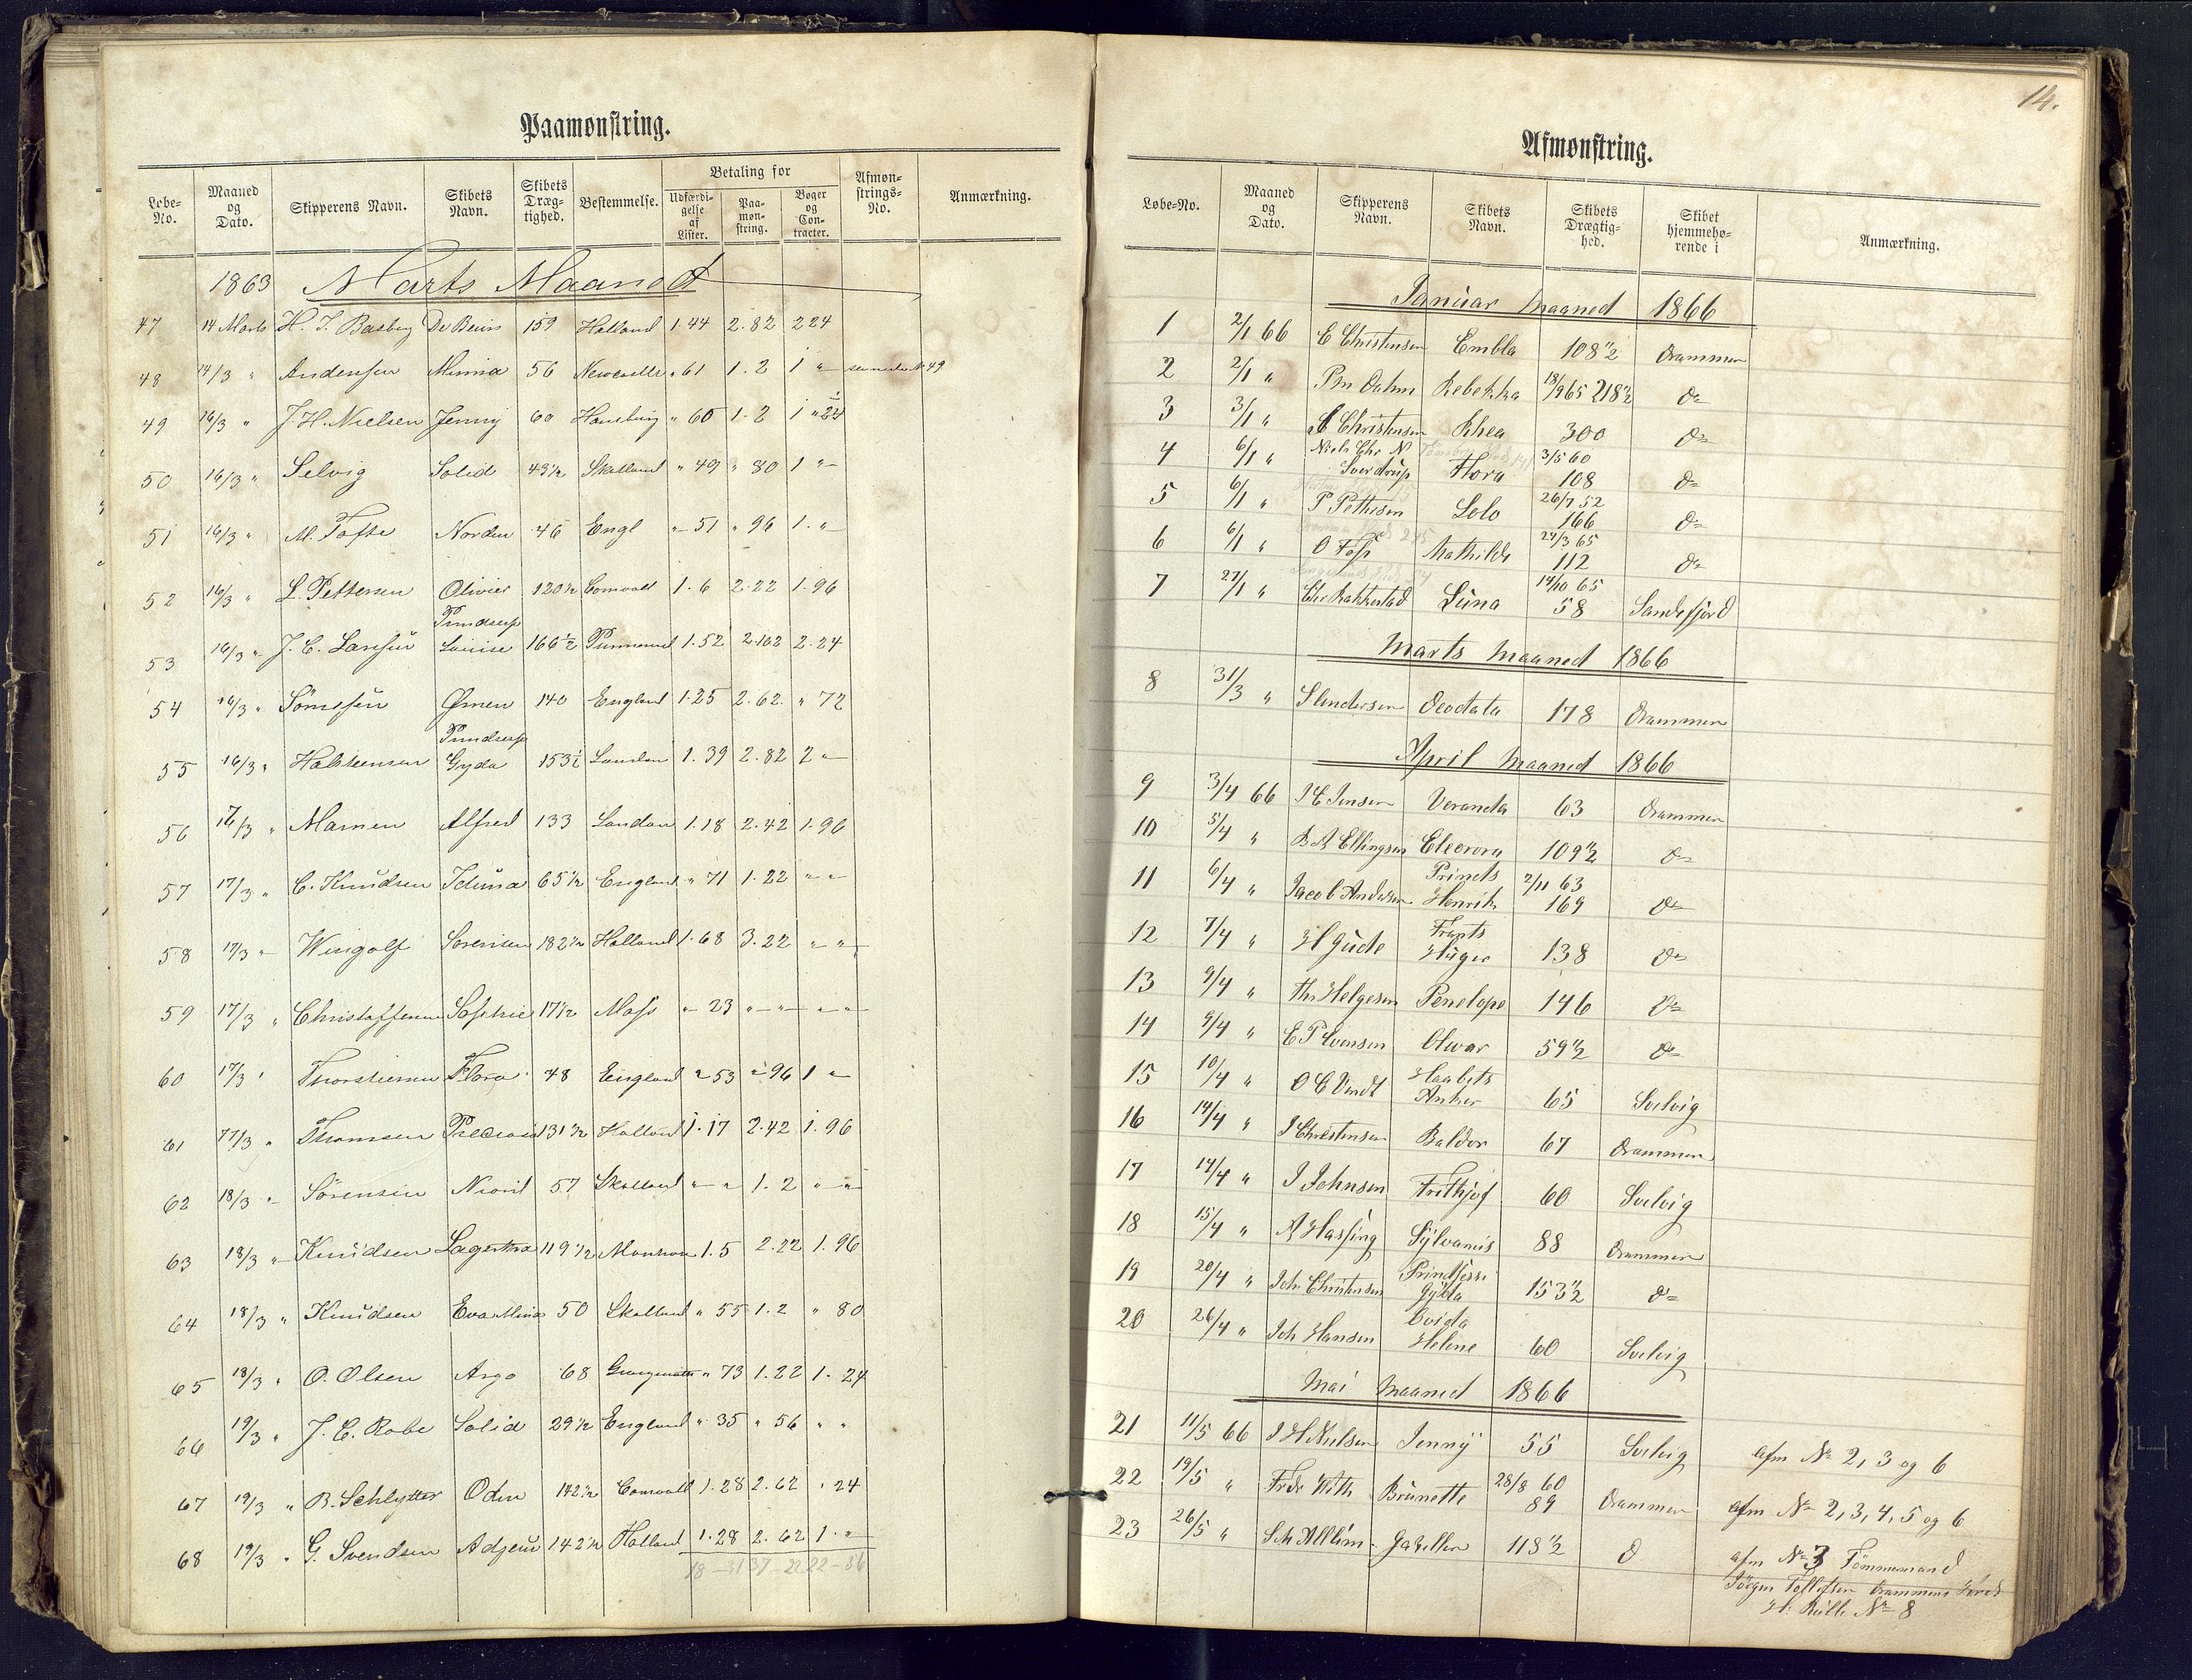 Paamønstring.
Løbe-No. | Maaned og Dato. | Skipperens Navn. | Skibets Navn. | Skibets Dræg-tighed. | Bestemmelse. | Betaling for | Udfærdi-gelse af Lister. | Paa-møn-string. | Bøger og Con-tracter. | Afmøn-strings-No. | Anmærkning.
1863 Marts Maaned
47 14 Marts H. J. Basberg 159 Holland 1.44 2.82 2 24
48 14/3 " Andersen Minna 56 Newcastle " 61 1.2 1 " No 49
49 16/3 " J. H. Nielsen Jenny 60 Hamburg " 60 1-2 1 " 24
50 16/3 " Selvig Solid 43 1/2 Skotland " 49 " 80 1 "
51 16/3 " M. Tofte Norden 46 Engl " 51 " 96 1. "
52 16/3 " L. Pettersen Olivier 120 1/2 Cornwall 1.6 2.22 1.96
53 16/3 " J. C. Larsen Prindsesse Louise 166 1/2 1.52 2.102 2.24
54 16/3 " Ørnen 140 England 1.25 2.62. " 72
55 16/3 " Halstensen Prindsesse Gyda 153 1/2 London 1.39 2.82 2 "
56 16/3 " Mamen Alfred 133 London 1.18 2.42 1.96
57 17/3 " C. Knudsen Iduna 65 1/2 England " 71 1.22 " "
58 17/3 " Wingolf Sorensen 182 1/2 Holland 1.68 3.22 " "
59 17/3 " Christoffersen Sophie 17 1/2 Moss " 23 " " " "
60 17/3 " Thorstensen Flora 48 England " 53 " 96 1 "
61 17/3 " Thomsen Preciosa 131 1/2 Holland 1.17 2.42 1.96
62 18/3 " Sörensen 57 Skotland " " 1.2 " "
63 18/3 " Knudsen Lagertha 119 1/2 1.5 2.22 1.96
64 18/3 " Knudsen Eva Mina 50 Skotland " 55 1.2 " 80
65 18/3 " O. Olsen Argo 68 " 73 1.22 1.24
66 19/3 " J. C. Robe Solid 29 1/2 England " 35 " 56 " "
67 19/3 " B. Schlytter Odin 142 1/2 Cornwall 1.28 2.62 " 24
68 19/3 " G. Svendsen 142 1/2 Holland 1.28 2.62 1. "
14.
Afmønstring.
Løbe-No. | Maaned og Dato. | Skipperens Navn. | Skibets Navn. | Skibets Drægtig-hed. | Skibet hjemmehø-rende i | Anmærkning.
Januar Maaned 1866
1 2/1 66 E Christensen Embla 108 1/2 Drammen
2 2/1 " Rebekka 18/9 65 218 1/2 do
3 3/1 " C Christensen Rhea 300 do
4 6/1 " Niels Chr N Sverdrup Flora 3/5 60 108 do
5 6/1 " P Pettersen Lolo 26/7 52 166 do
6 6/1 " O Foss Mathilde 27/3 65 112 do
7 27/1 " Chr Bakkestad Luna 14/10 65 58 Sandefjord
Marts Maaned 1866
8 31/3 " S Andersen Deodata 178 Drammen
April Maaned 1866
9 3/4 66 J E Jensen Veranda 63 Drammen
10 5/4 " B A Ellingsen Eleonora 109 1/2 do
11 6/4 " Jacob Andersen Prinds Henrik 2/11 63 169 do
12 7/4 " H Gude 138 do
13 9/4 " Ths Helgesen Penelope 146 do
14 9/4 " E P Evensen Olivar 59 1/2 do
15 10/4 " O C Vindt Haabets Anker 65 Svelvig
16 14/4 " J Christensen Baldor 67 Drammen
17 14/4 " J Johnsen Frithjof 60 Svelvig
18 15/4 " A Hassing Sylvanus 88 Drammen
19 20/4 " Joh Christensen Prindsesse Gyda 153 1/2 do
20 26/4 " Joh Hansen Helene 60 Svelvig
Mai Maaned 1866
21 11/5 66 J H Nielsen Jenny 55 Svelvig afm No 2, 3 og 6
22 19/5 " Brünette 28/8 60 89 Drammen afm No 2, 3, 4, 5 og 6
23 26/5 " 118 1/2 do afm No 3 Tömmermand
Jörgen Tollefsen Drammens
H. Rulle No 8